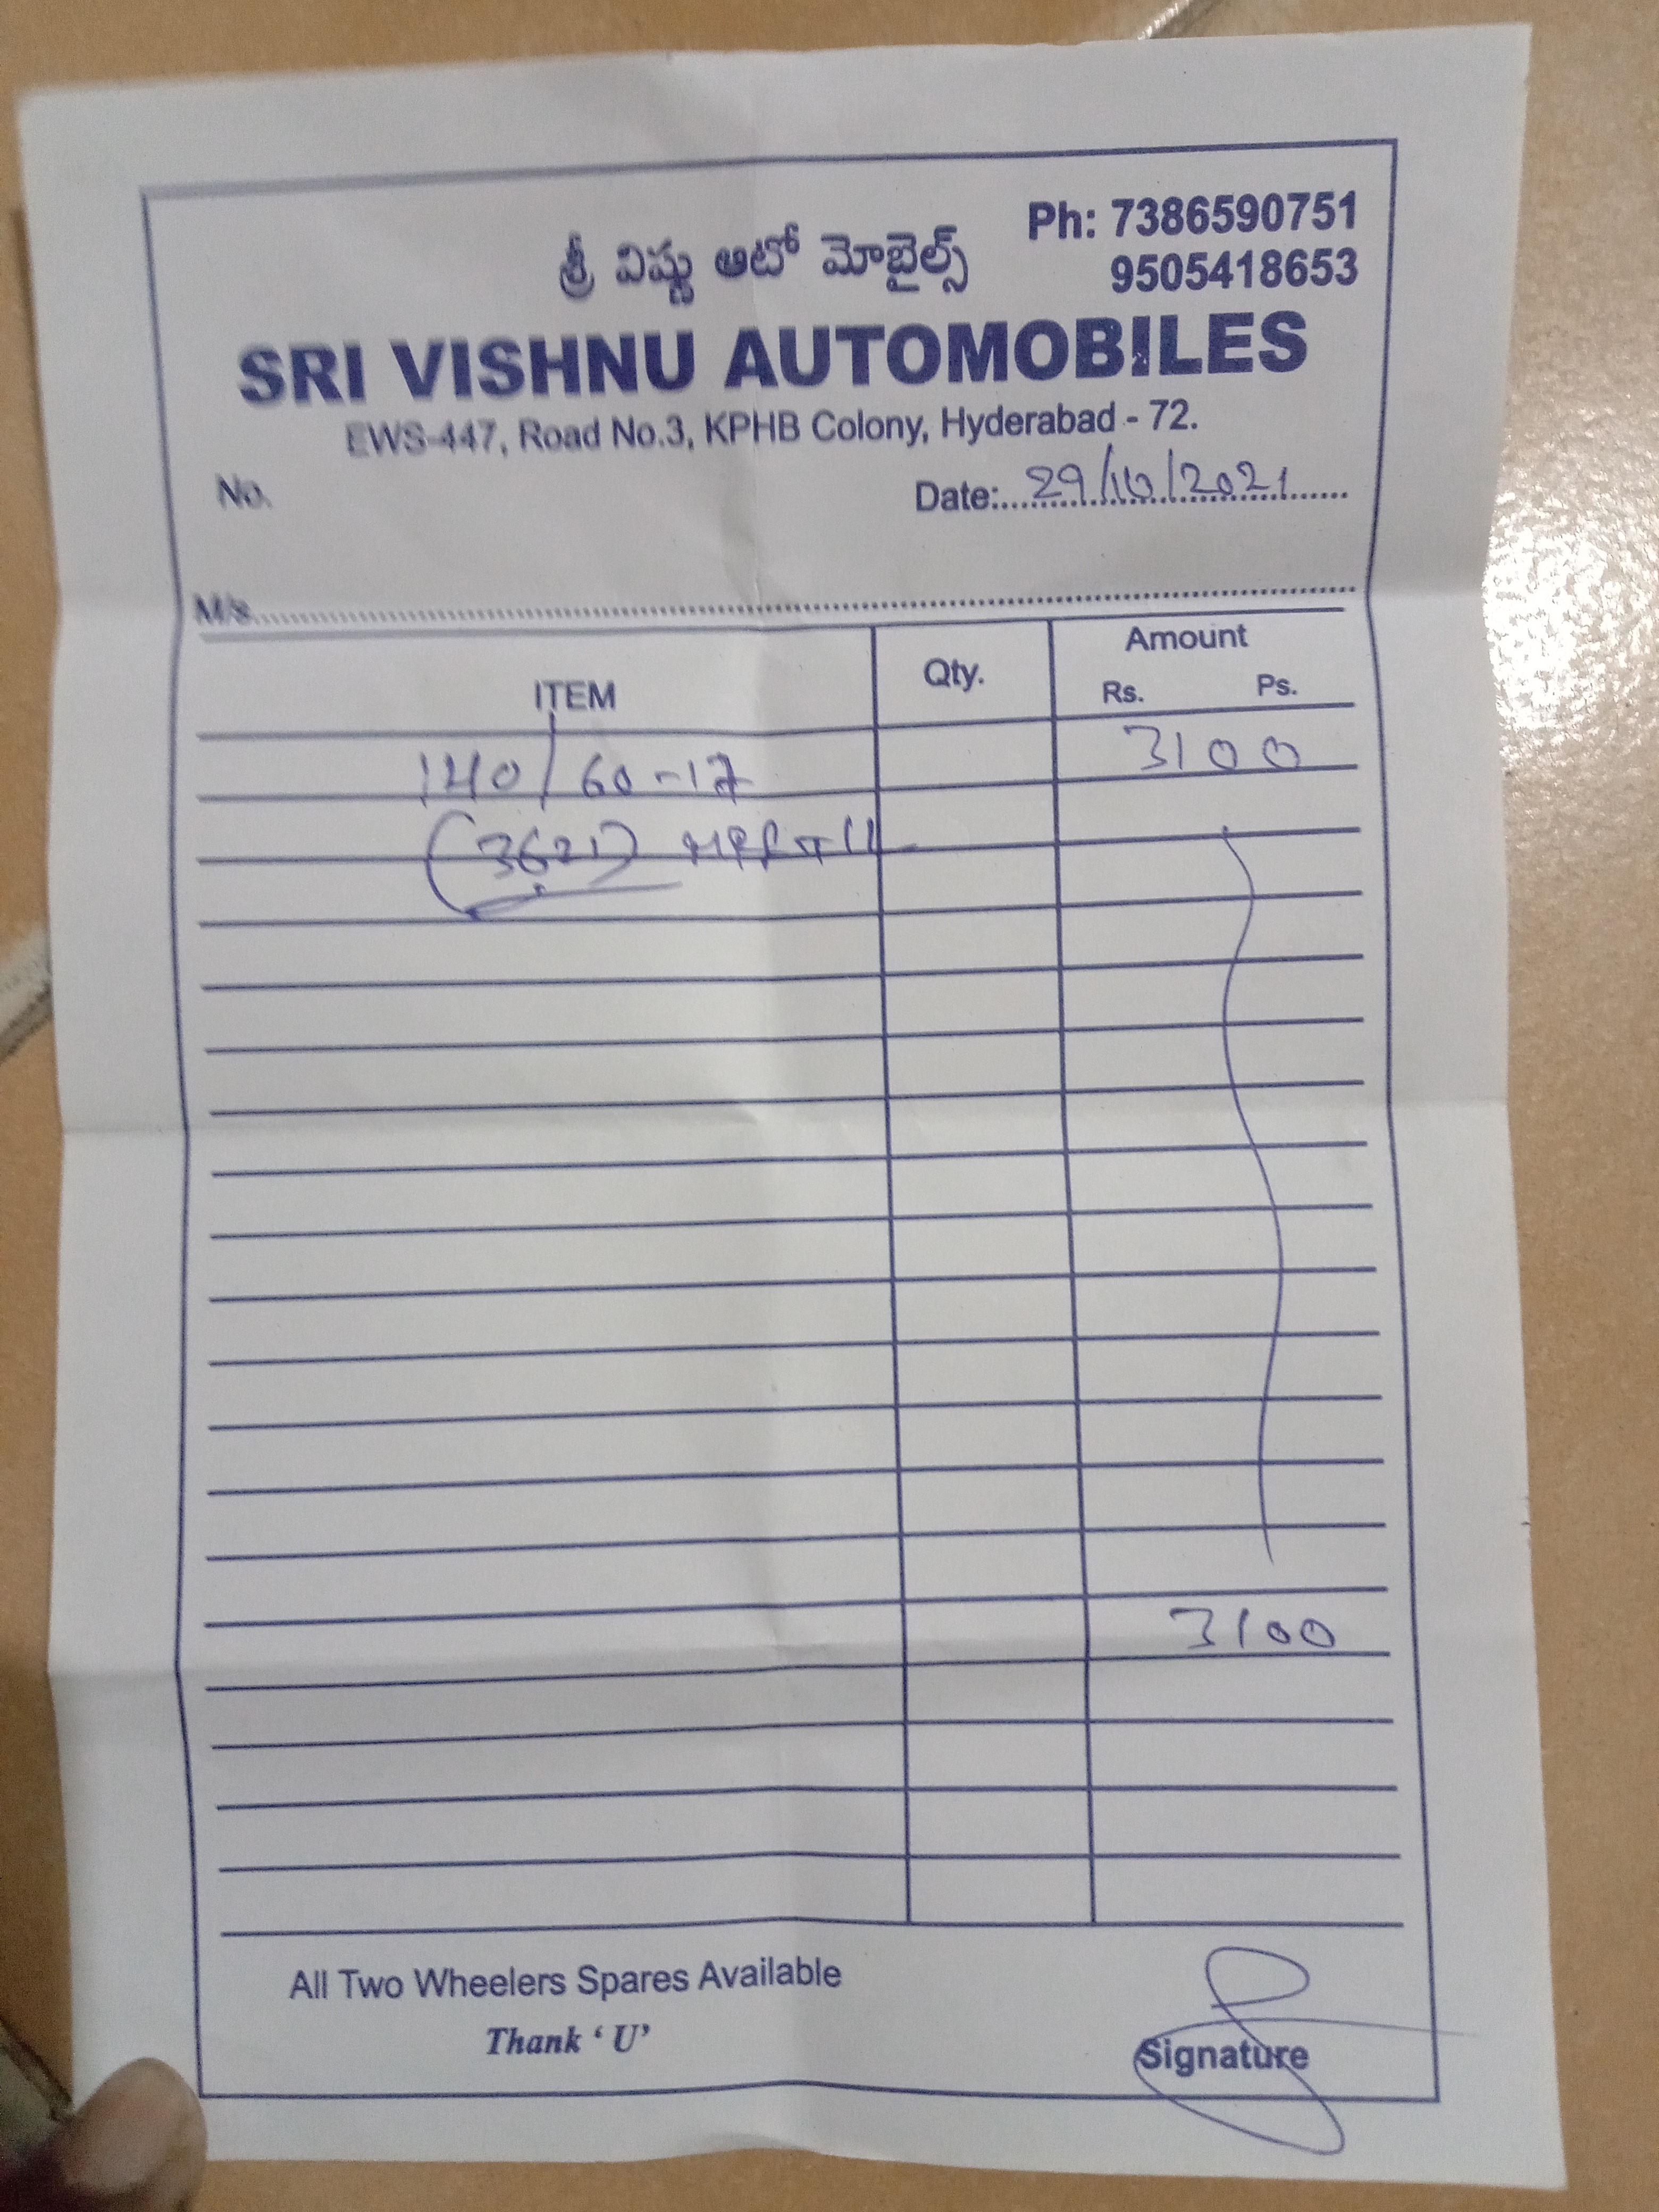 Ph: 7386590751
9505418653
శ్రీ విష్ణు ఆటో మోబైల్స్
SRI VISHNU AUTOMOBILES
EWS-447, Road No.3, KPHB Colony, Hyderabad - 72.
No.
Date: 29/10/2021
M/s.
ITEM Qty. Amount
Rs. Ps.
140/60-17 3100
(3621) MRF
3100
All Two Wheelers Spares Available
Thank ‘ U’
Signature